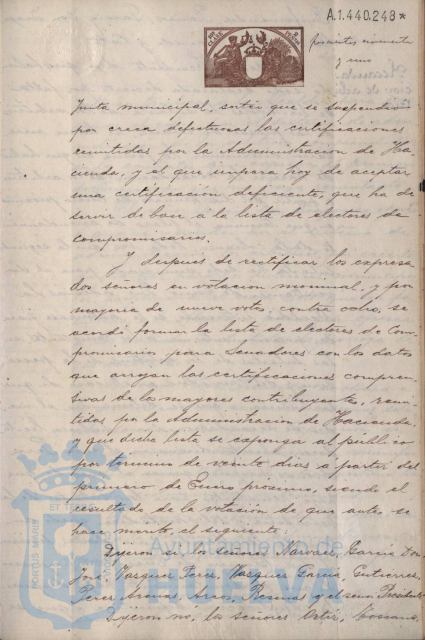 A.1.440.248*
y uno
Junta municipal, sortéo que se suspendió
por creca defectuosas las certificaciones
remitidas por la Administracion de Ha-
cienda, y el que impera hoy de aceptar
una certificación deficiente, que ha de
servir de base á la lista de electores de
compromisarios.
Y despues de rectificar los expresa
dos señores en votacion nominal, y por
mayoria de nueve votos contra ocho, se
acordó formar la lista de electores de Com-
promisarios para Senadores con los datos
que arrojan las certificaciones compren-
sivas de los mayores contribuyentes, remi-
tidas por la Administracion de Hacienda,
y que dicha lista se exponga al público
por término de veinte dias á partir del
primero de Enero proximo, siendo el
resultado de la votación de que antes se
hace mérito, el siguiente:
Dijeron sí, los señores Narvaez, Garcia Don
José, Vazquez Perez, Vazquez Garcia, Gutierrez,
Perez y el señor Presidente
Dijeron no, los señores Ortiz,
Ayuntamiento de
HUELVA